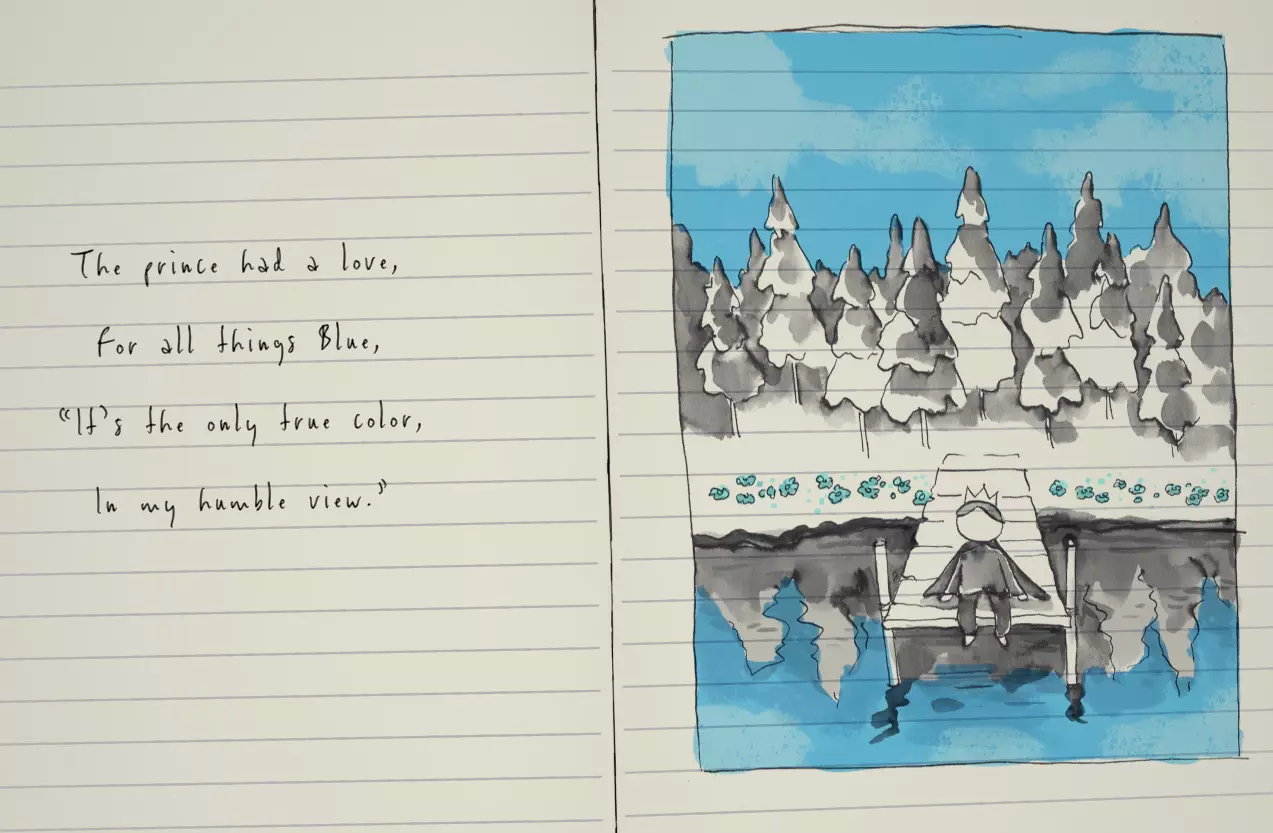 The prince had a love,
For all things Blue,
"It's the only true color,
In my humble view."